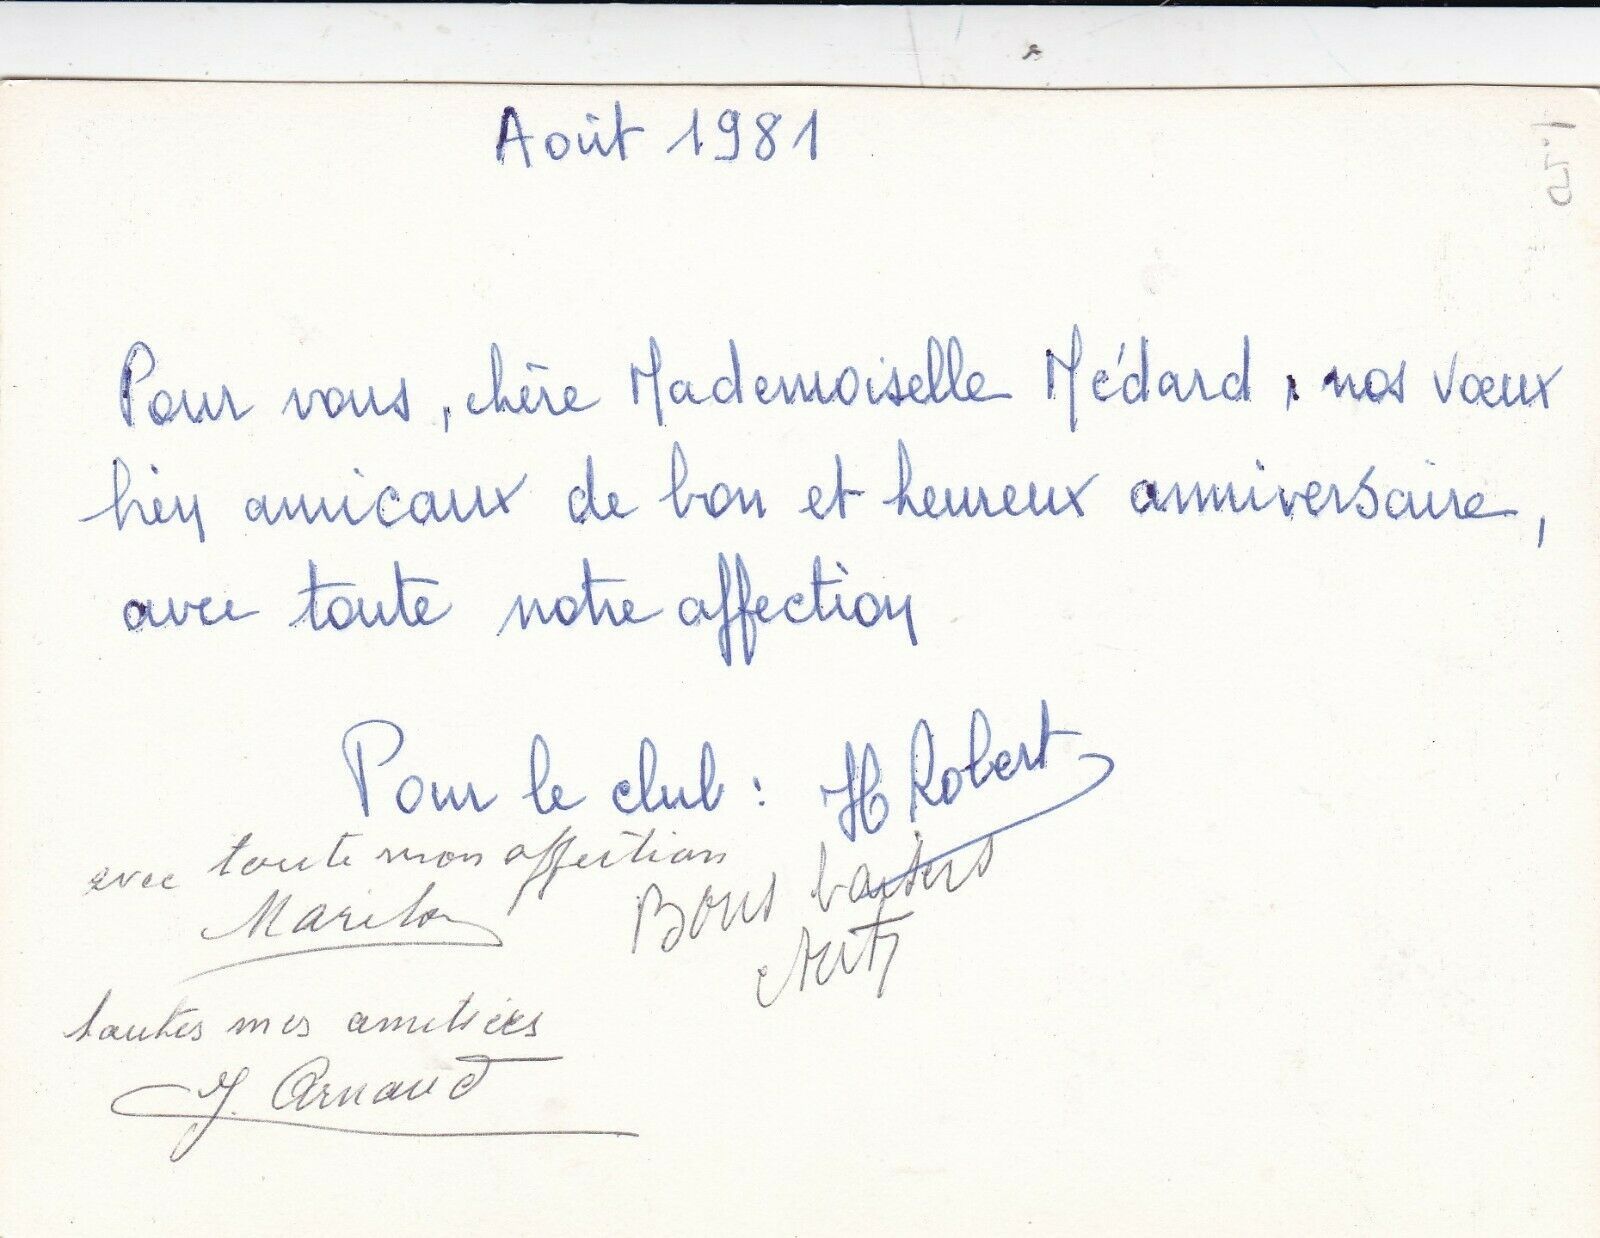 Août 1981
Pour vous, chère Mademoiselle Médard, nos vœux
bien amicaux de bon et heureux anniversaire,
avec toute notre affection
Pour le club : H Robert
avec toute mon affection
Bons baisers
toutes mes amitiées
J. Arnaud